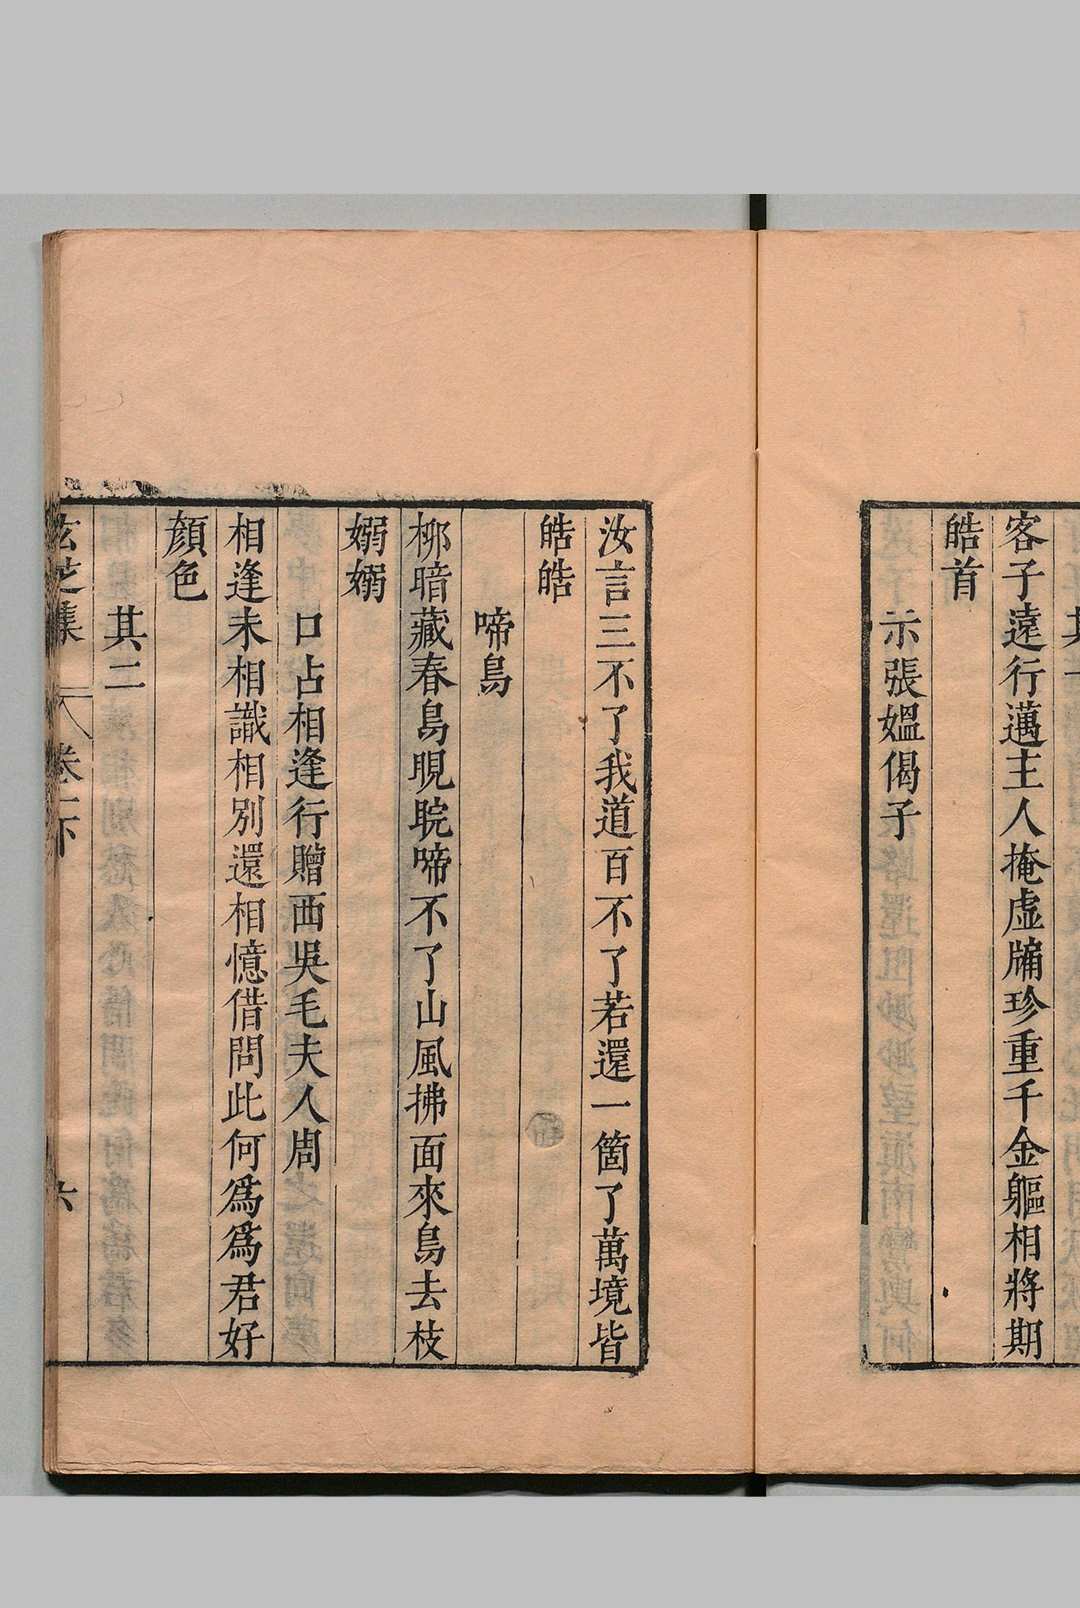 客子遠行邁主人掩虛牖珍重千金軀相將期
皓首
示張媼偈子
汝言三不了我道百不了若還一箇了萬境皆
皓皓
啼鳥
柳暗藏春鳥睍睆啼不了山風拂面來鳥去枝
嫋嫋
口占相逢行贈西吳毛夫人周
相逢未相識相別還相憶借問此何為為君好
顏色
其二
玄芝集 卷下 六